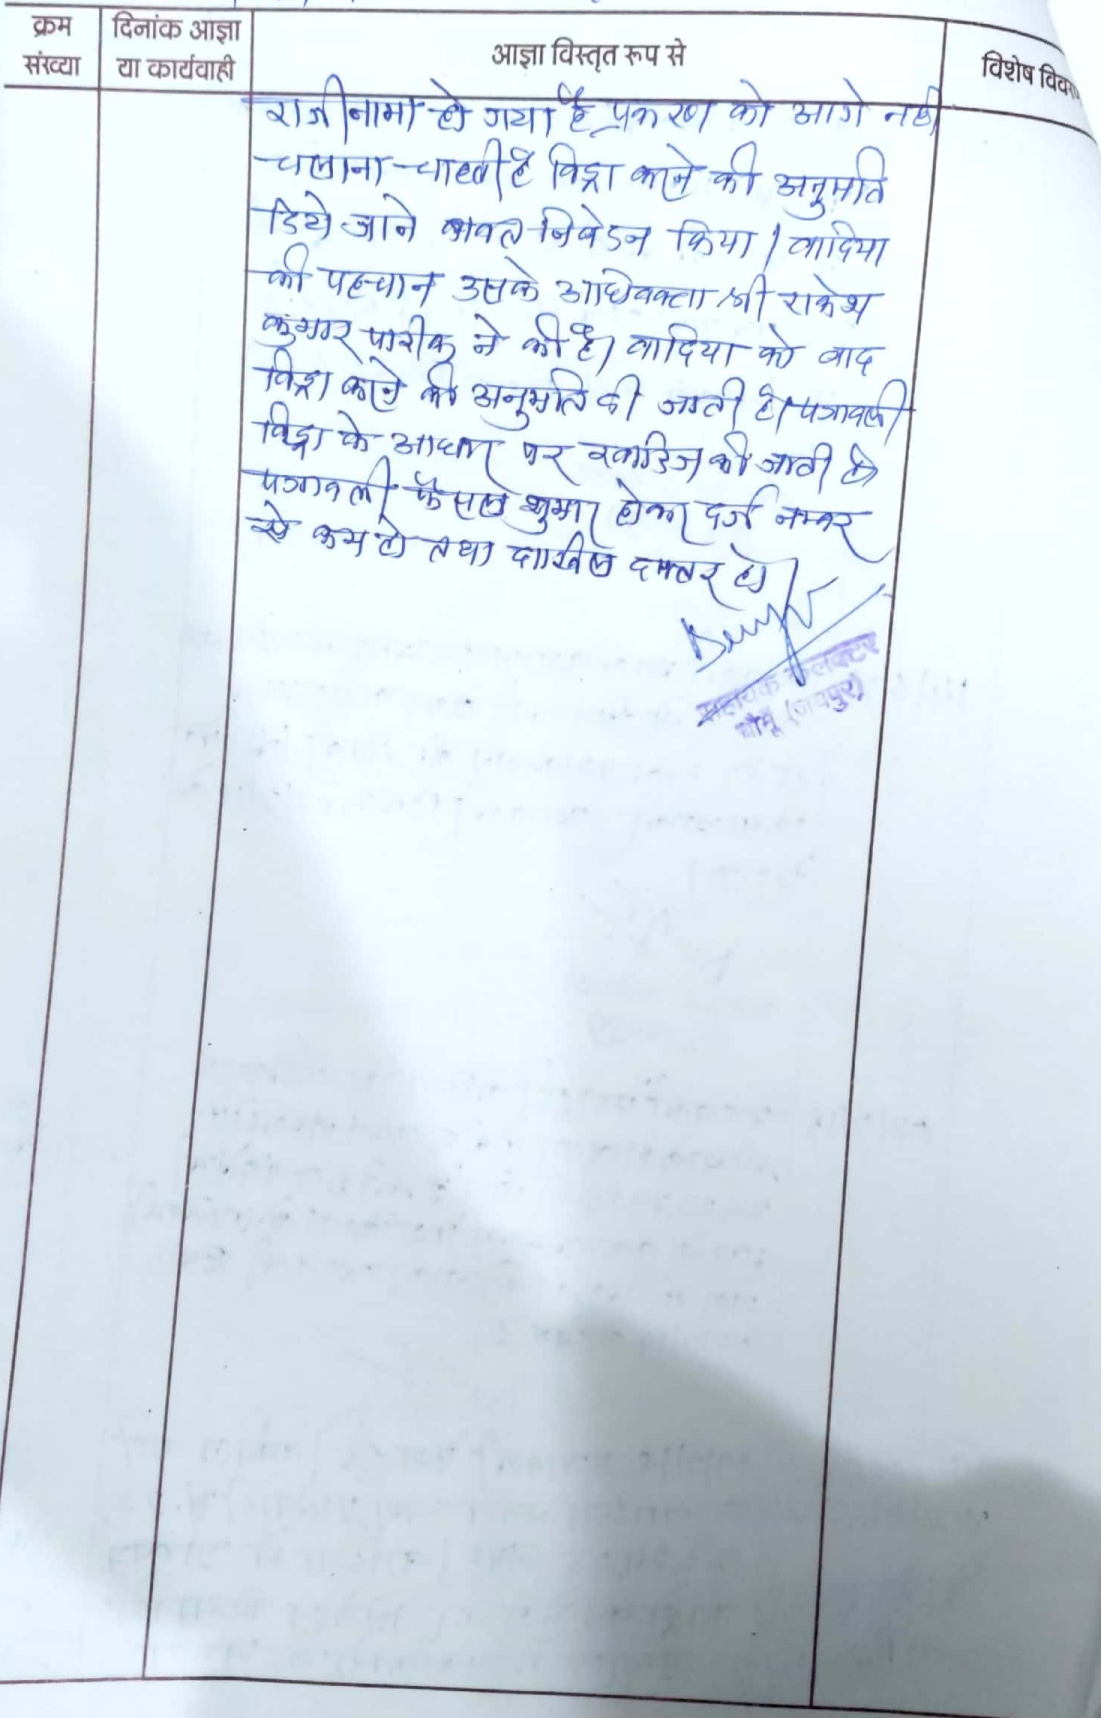 क्रम संख्या
दिनांक आज्ञा या कार्यवाही
आज्ञा विस्तृत रूप से
विशेष विवरण
राजीनामा हो गया है प्रकरण को आगे नही
चलाना चाहती है विड्रा करने की अनुमति
दिये जाने बाबत निवेदन किया। वादिया
की पहचान उसके अधिवक्ता श्री राकेश
कुमार पारीक ने की है। वादिया को वाद
विड्रा करने की अनुमति दी जाती है। पत्रावली
विड्रा के आधार पर खारिज की जाती है
पत्रावली फैसल शुमार होकर दर्ज नम्बर
से कम हो तथा दाखिल दफ्तर हो।
सहायक कलक्टर
चौमूं (जयपुर)